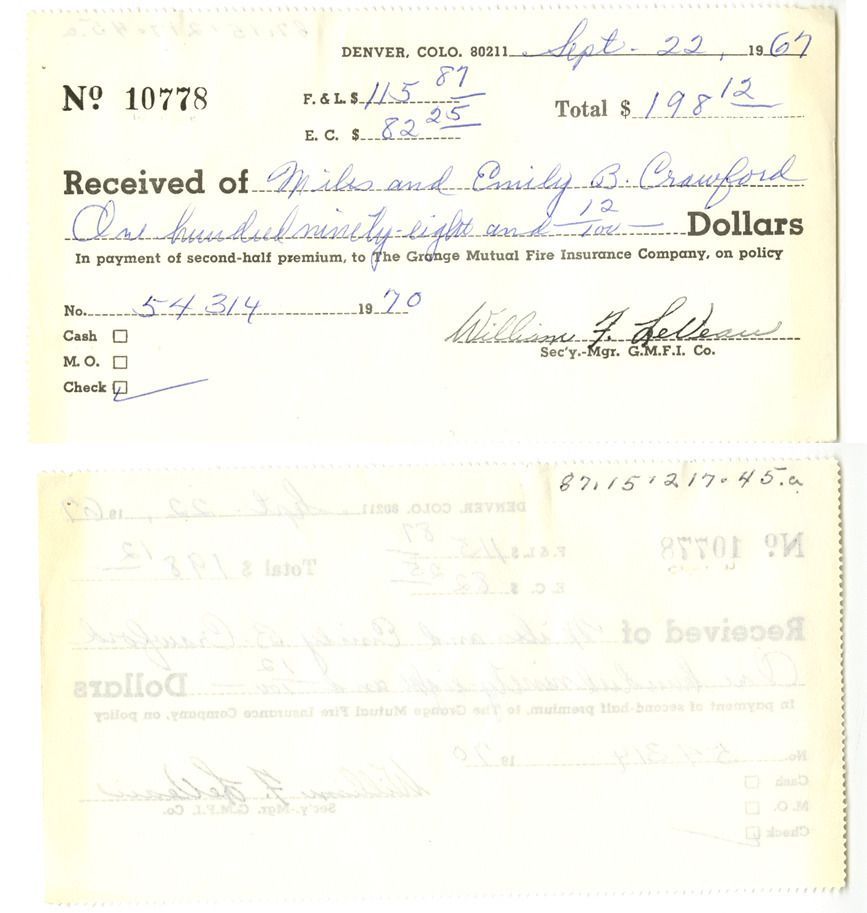 DENVER, COLO. 80211 Sept. 22, 1967
Nº 10778
F. & L. $ 115 87
E. C. $ 82 25
Total $ 198 12
Received of Miles and Emily B. Crawford
One hundred ninety-eight and 12/100 Dollars
In payment of second-half premium, to The Grange Mutual Fire Insurance Company, on policy
No. 54314 1970
Cash
M. O.
Check
William F. LeVeau
Sec'y.-Mgr. G.M.F.I. Co.
87.15.217.45.a